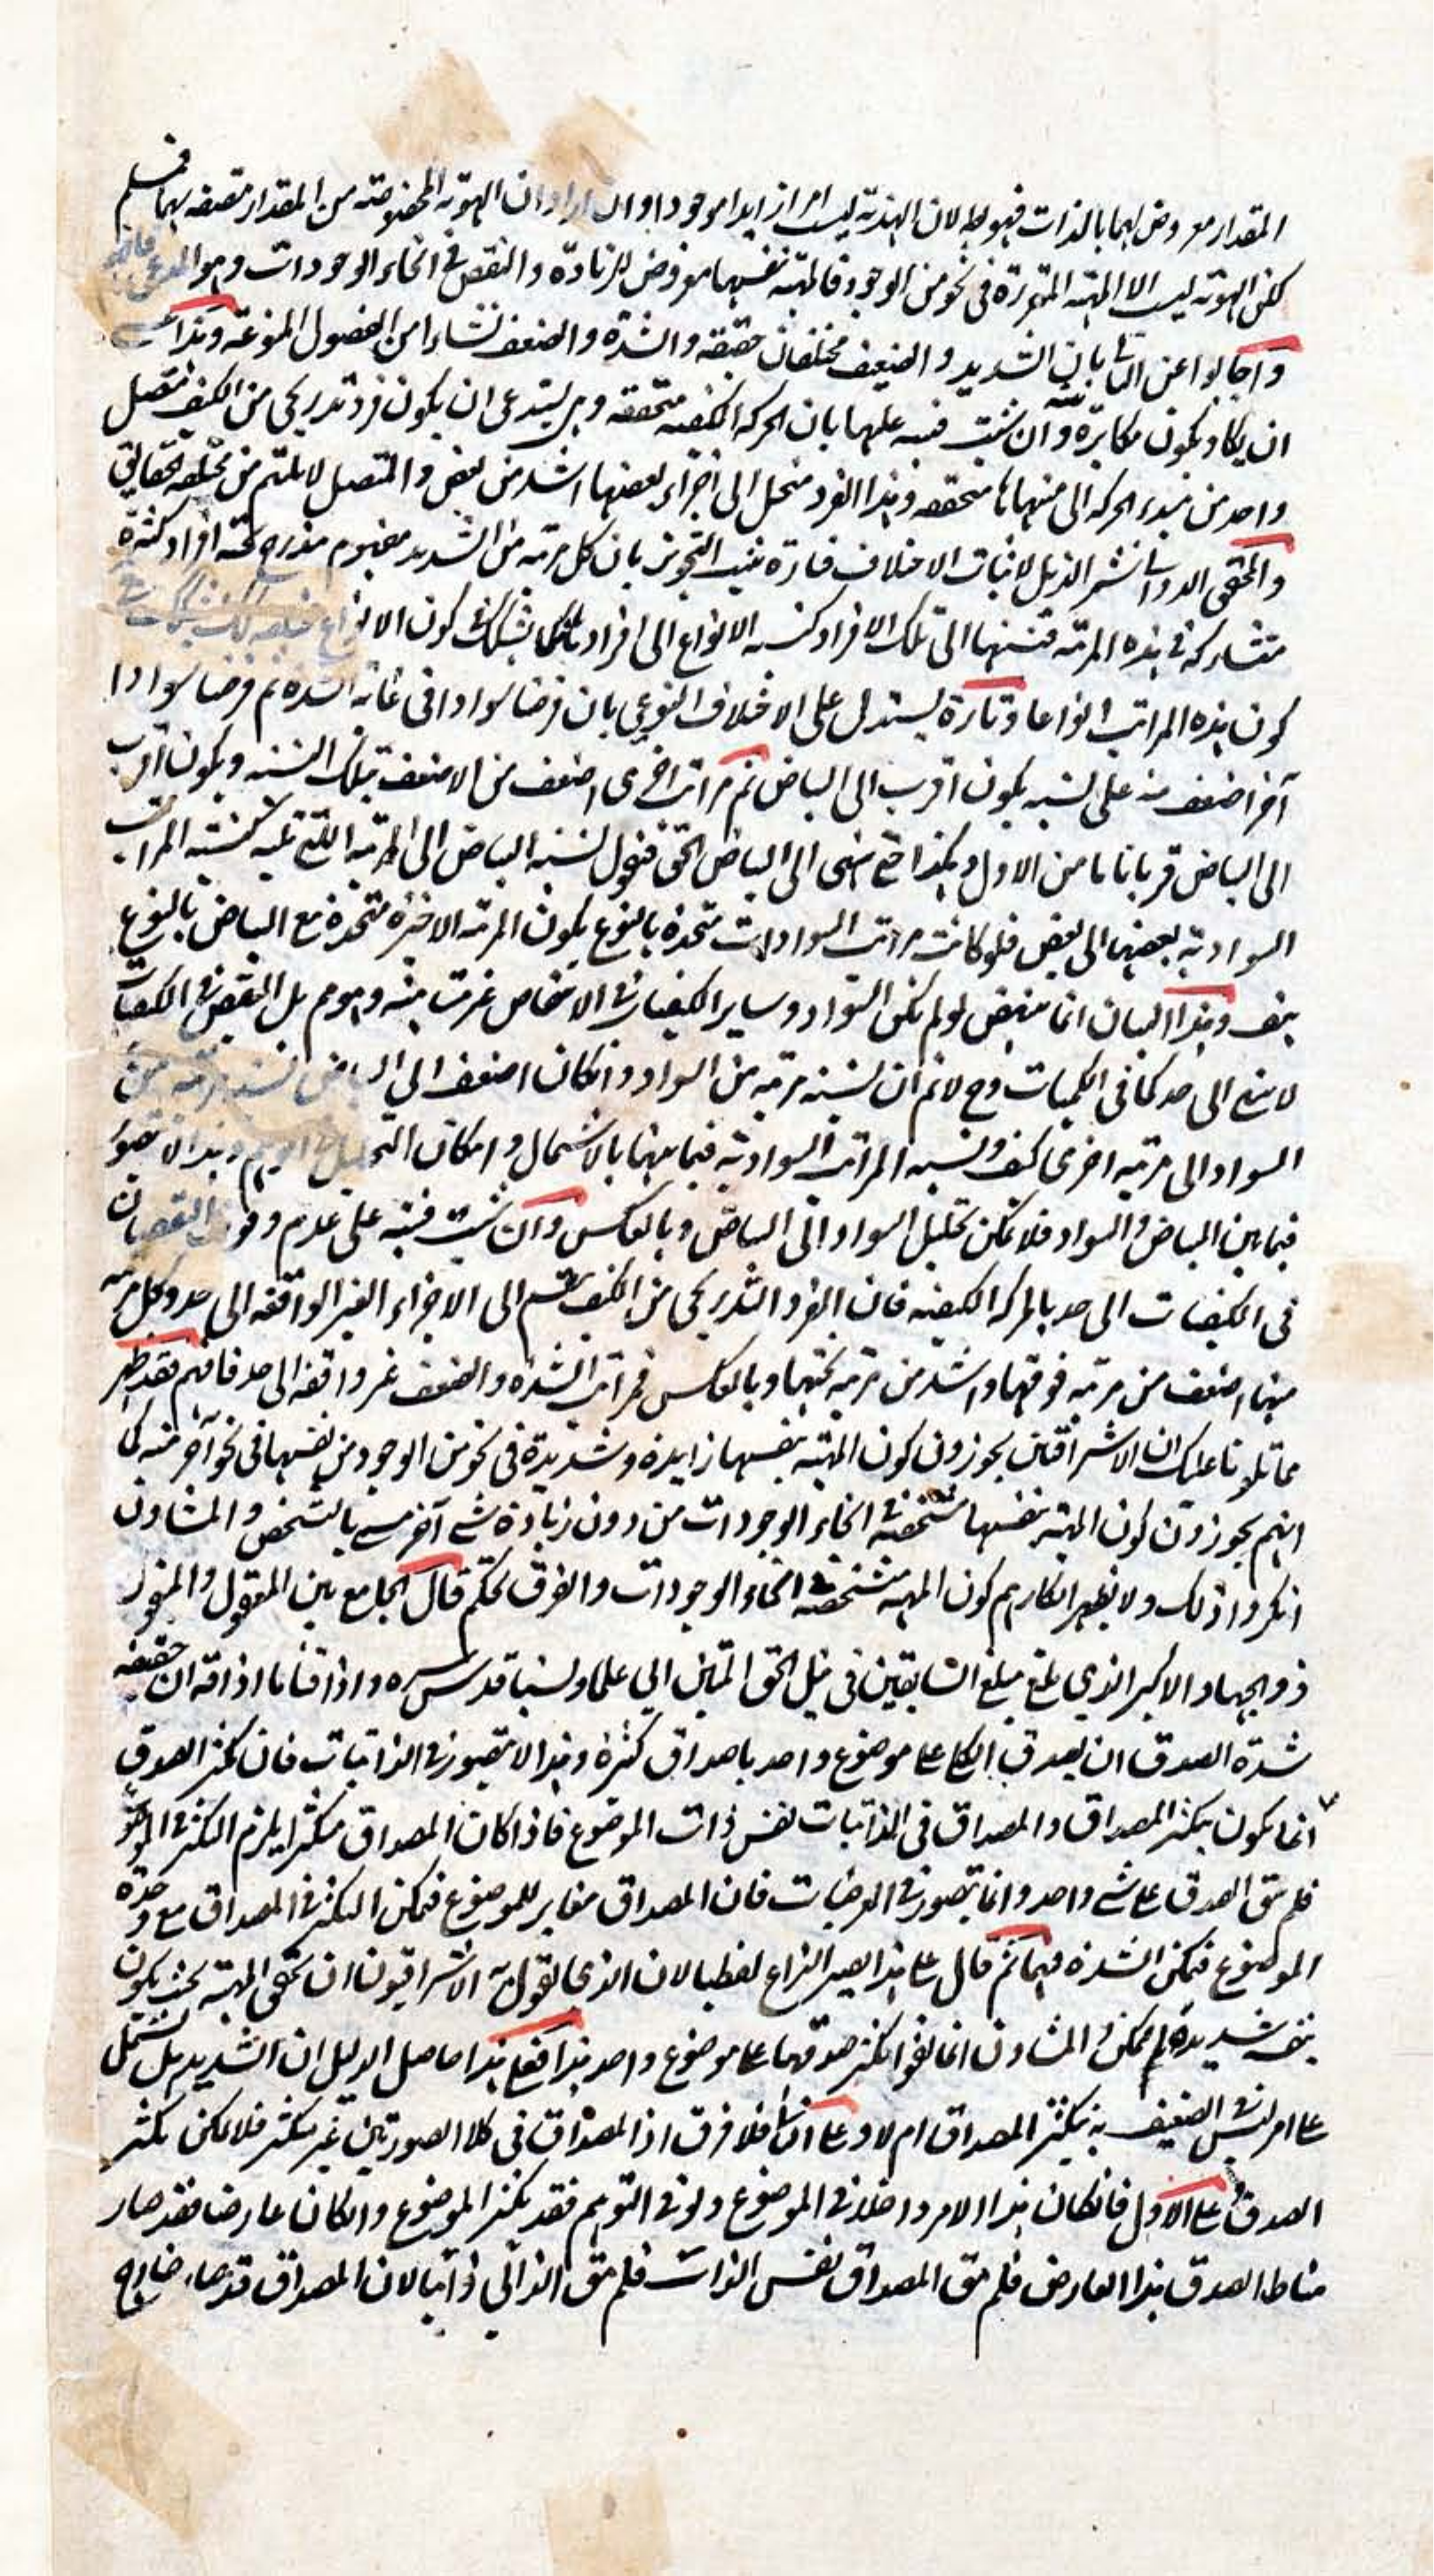 المقدار معروض لهما بالذات فهو بط لان الهذية ليست امرا زايدا موجودا وان اراد ان الهوية المخصوصة من المقدار متصفه بهما فمسلم
لكن الهوية ليست الا المهية المتقررة فى نحو من الوجود فالمهية نفسها معروض للزيادة والنقص فى انحاء الوجودات وهو المدعى
واجابوا عن الثانى بان الشديد والضعيف مختلفان حقيقه والشدة والضعف نشاءا من الفصول المنوعة وهذا عسى
ان يكاد يكون مكابرة وان شئت فنبه عليها بان الحركة الكيفيه متحققه وهى يستدعى ان يكون فرد تدريجى من الكيف متصل
واحد من مبدء الحركه الى منتهاها متحققه وهذا الفرد منحل الى اجزاء بعضها اشد من بعض والمتصل لا يلتئم من مختلفه الحقايق
والمحقق الدوانى نشر الذيل لاثبات الاختلاف فتارة بالتجويز بان كل مرتبه من الشديد مفهوم مندرج تحته افراد كثيرة
متشاركة فى هذه المرتبه فنسبتها الى تلك الافراد كنسبه الانواع الى افرادها فكما يشكك فى كون الانواع
كون هذه المراتب انواعا وتارة يستدل على الاختلاف النوعى بان فرضنا سوادا فى غاية الشدة ثم فرضنا سوادا
آخر اضعف منه على نسبه يكون اقرب الى البياض ثم مراتب اخرى اضعف من الاضعف بتلك النسبه ويكون اقرب
الى البياض قربا ما من الاول وهكذا حتى ينتهى الى البياض الحق فنقول نسبة البياض الى المرتبه التى تليه كنسبة المراتب
السوادية بعضها الى بعض فلو كانت مراتب السوادات متحدة بالنوع يكون المرتبه الاخيرة متحدة مع البياض بالنوع
هف وهذا البيان انما ينهض لو لم يكن السواد وسائر الكيفيات فى الانتقاص غير متناهية وهو مم بل النقص فى الكيفيات
لا ينتهى الى حد كما فى الكميات وح لانم ان نسبة مرتبه من السواد وانكان اضعف الى البياض كنسبة مرتبه من
السواد الى مرتبه اخرى كيف ونسبه المراتب السوادية فيما بينها بالاشتمال وامكان التحليل فى الوهم وهذا لا يتصور
فيما بين البياض والسواد فلا يمكن تحليل السواد الى البياض وبالعكس وان شئت فنبه على عدم وقوف النقصان
فى الكيفيات الى حد بالحركه الكيفيه فان الفرد التدريجى من الكيف ينقسم الى الاجزاء الغير الواقفه الى حد وكل مرتبه
منها اضعف من مرتبه فوقها واشد من مرتبه تحتها وبالعكس فمراتب الشدة والضعف غير واقفة الى حد فافهم فقد ظهر
مما تلونا عليك ان الاشراقيين يجوزون كون المهية بنفسها زايدة وشديدة فى نحو من الوجود من نفسها فى نحو آخر منه كما
انهم يجوزون كون المهية بنفسها متشخصة فى انحاء الوجودات من دون زيادة شئ آخر مسمى بالتشخص والمشاؤن
انكروا ذلك ولا يظهر انكارهم كون المهية متشخصة فى انحاء الوجودات والفرق تحكم قال الجامع بين المعقول والمنقول
ذو الجهاد الاكبر الذى بلغ مبلغ السابقين فى نيل الحق المتين ابى علما ونسبا قدس سره واذاقنا ما اذاقه ان حقيقه
شدة الصدق ان يصدق الكلى على موضوع واحد باصداق كثيرة وهذا لا يتصور فى الذاتيات فان تكثر الصدق
انما يكون بتكثر المصداق والمصداق فى الذاتيات نفس ذات الموضوع فاذا كان المصداق متكثرا يلزم التكثر فى الموضوع
فلم يبق الصدق على شئ واحد وانما يتصور فى العرضيات فان المصداق مغاير للموضوع فيمكن التكثر فى المصداق مع وحدة
الموضوع فيمكن الشدة فيها ثم قال على هذا يصير النزاع لفظيا لان الذى يقول به الاشراقيون ان تحقق المهية بحيث يكون
بنفسه شديدة لم يمكن والمشاؤن انما نفوا تكثر صدقها على موضوع واحد هذا فعلى هذا حاصل الدليل ان الشديد هل يشتمل
على امر ليس فى الضعيف به يتكثر المصداق ام لا وعلى الثانى فلا فرق اذ المصداق فى كلا الصورتين غير متكثر فلا يمكن تكثر
الصدق وعلى الاول فانكان هذا الامر داخلا فى الموضوع ولو فى التوهم فقد تكثر الموضوع وانكان عارضا فقد صار
مناط الصدق هذا العارض فلم يبق المصداق نفس الذات فلم يبق الذاتى ذاتيا لان المصداق قد صار خارج